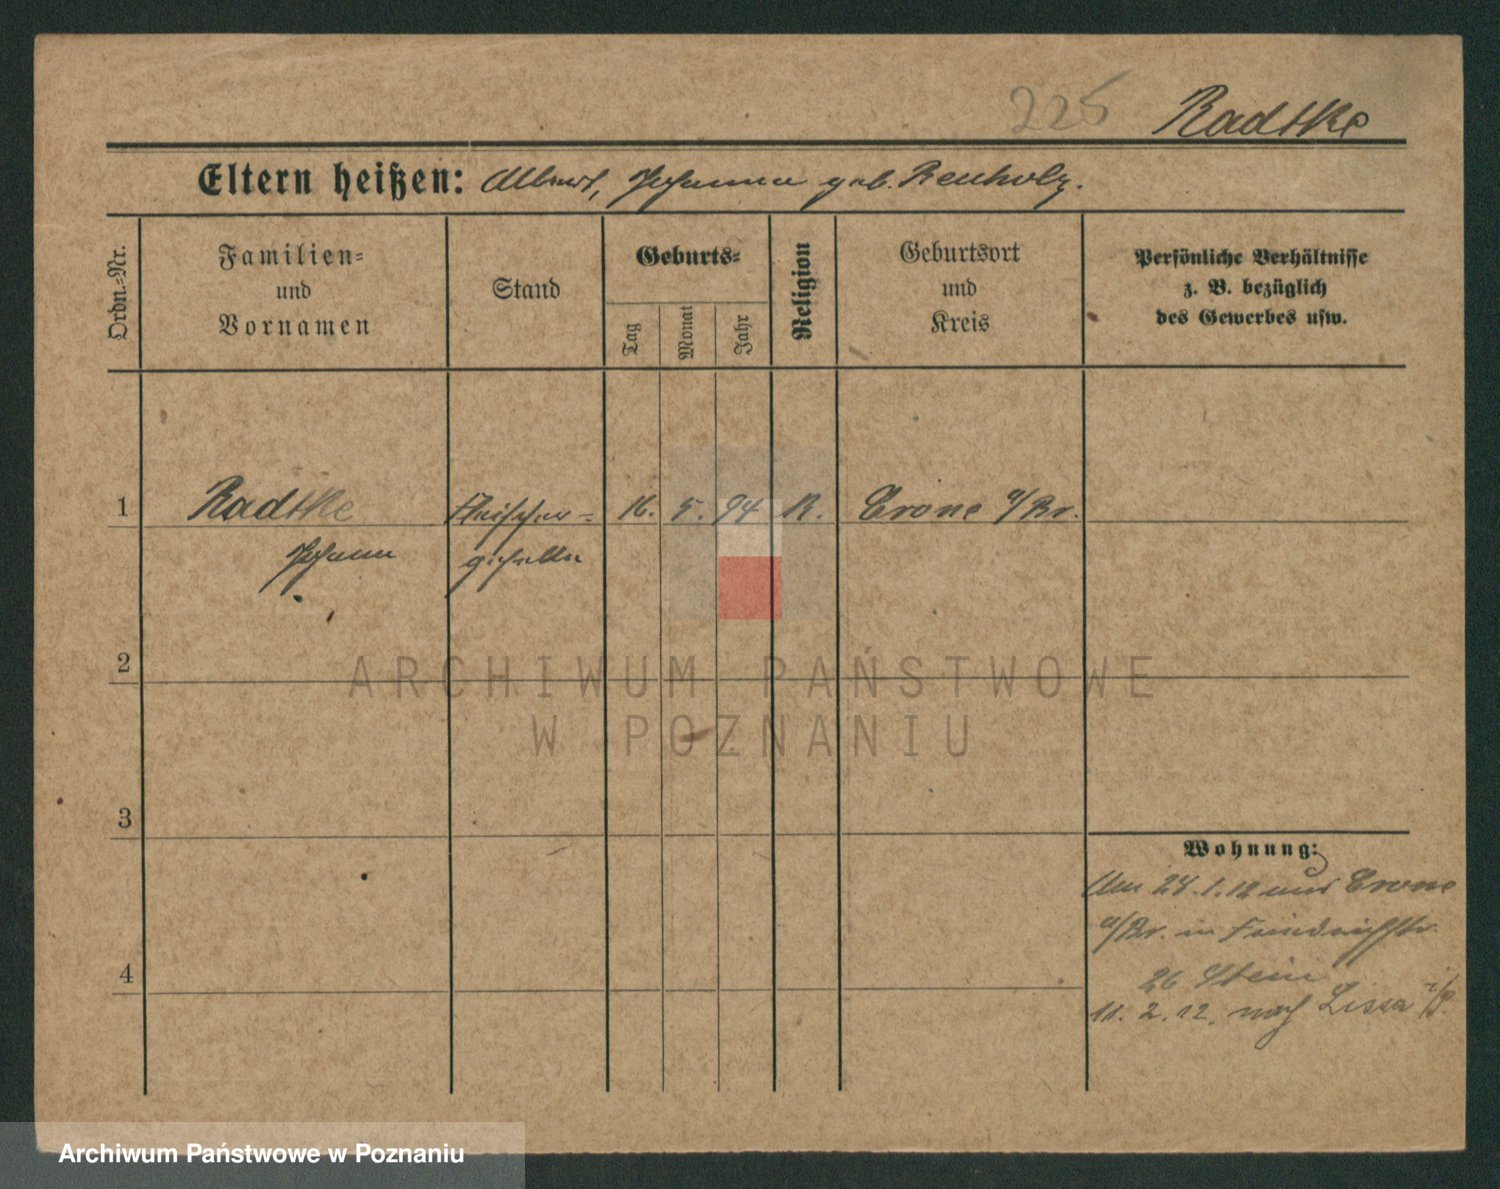 225 Radtke
Eltern heißen: Albert, Johanna geb. Renholz.
Ordn.-Nr.
Familien-
und
Vornamen
Stand
Geburts-
Tag
Monat
Jahr
Religion
Geburtsort
und
Kreis
Persönliche Verhältnisse
z. B. bezüglich
des Gewerbes usw.
1 Radtke Fleischer- 16. 5. 94 K. Crone a/Br.
Johann geselle
2
3
4
Wohnung:
Am 24.1.12 aus Crone
a/Br. in Friedrichstr.
26 Stein
11. 2. 12. nach Lissa i/P.
ARCHIWUM PAŃSTWOWE
W POZNANIU
Archiwum Państwowe w Poznaniu